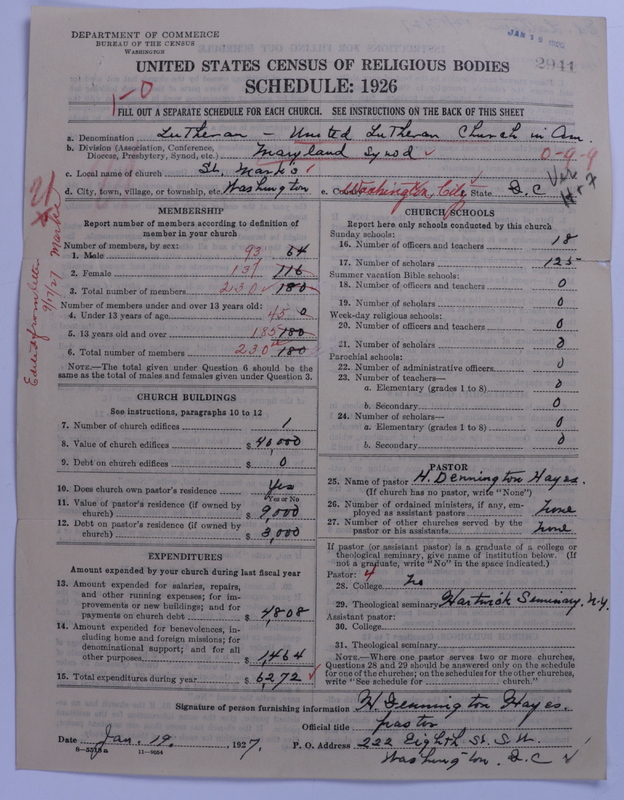 DEPARTMENT OF COMMERCE
BUREAU OF THE CENSUS
WASHINGTON
2941
UNITED STATES CENSUS OF RELIGIOUS BODIES
SCHEDULE: 1926
1-0
FILL OUT A SEPARATE SCHEDULE FOR EACH CHURCH. SEE INSTRUCTIONS ON THE BACK OF THIS SHEET
a. Denomination Lutheran - United Lutheran Church in Am.
b. Division (Association, Conference,
Diocese, Presbytery, Synod, etc.) Maryland Synod
0-9-9
c. Local name of church St. Mark's
d. City, town, village, or township, etc. Washington e. County Washington City State D. C
Edited from letter 9/17/27
MEMBERSHIP
Report number of members according to definition of
member in your church
Number of members, by sex:
1. Male 93 64
2. Female 137 116
3. Total number of members 230 180
Number of members under and over 13 years old:
4. Under 13 years of age 45 0
5. 13 years old and over 185 180
6. Total number of members 230 180
NOTE.—The total given under Question 6 should be
same as the total of males and females given under Question 3.
CHURCH BUILDINGS
See instructions, paragraphs 10 to 12
7. Number of church edifices 1
8. Value of church edifices $ 40,000
9. Debt on church edifices $ 0
10. Does church own pastor's residence Yes
Yes or No
11. Value of pastor's residence (if owned by
church) $ 9,000
12. Debt on pastor's residence (if owned by
church) $ 3,000
EXPENDITURES
Amount expended by your church during last fiscal year
13. Amount expended for salaries, repairs,
and other running expenses; for im-
provements or new buildings; and for
payments on church debt $ 4808
14. Amount expended for benevolences, in-
cluding home and foreign missions; for
denominational support; and for all
other purposes $ 1,464
15. Total expenditures during year $ 6,272
CHURCH SCHOOLS
Report here only schools conducted by this church
Sunday schools:
16. Number of officers and teachers 18
17. Number of scholars 125
Summer vacation Bible schools:
18. Number of officers and teachers 0
19. Number of scholars 0
Week-day religious schools:
20. Number of officers and teachers 0
21. Number of scholars 0
Parochial schools:
22. Number of administrative officers 0
23. Number of teachers—
a. Elementary (grades 1 to 8) 0
b. Secondary 0
24. Number of scholars—
a. Elementary (grades 1 to 8) 0
b. Secondary 0
PASTOR
25. Name of pastor H. Dennington Hayes.
(If church has no pastor, write "None")
26. Number of ordained ministers, if any, em-
ployed as assistant pastors none
27. Number of other churches served by the
pastor or his assistants none
If pastor (or assistant pastor) is a graduate of a college or
theological seminary, give name of institution below. (If
not a graduate, write "No" in the space indicated.)
Pastor: 4
28. College No
29. Theological seminary Hartwick Seminary, N.Y.
Assistant pastor:
30. College
31. Theological seminary
NOTE.—Where one pastor serves two or more churches,
Questions 28 and 29 should be answered only on the schedule
for one of the churches; on the schedules for the other churches,
write "See schedule for church."
Signature of person furnishing information H. Dennington Hayes.
Official title pastor
Date Jan. 19, 1927. P. O. Address 222 Eighth St. S.W.
Washington D.C
8-5318a 11-9254